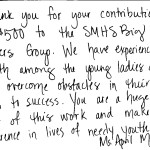 nk you for your contribution
$500 to the SMHS Bring
ers Group. We have experienc
th among the young ladies
overcome obstacles in their
to success. You are a huge
of this work and make
erence in lives of needy youth
Ms. April M